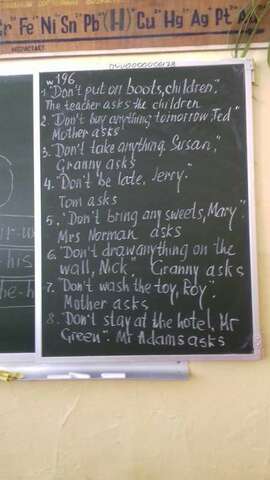 Cr Fe Ni Sn Pb (H) Cu Hg Ag Pt
w. 196
1. "Don't put on boots, children".
The teacher asks the children
2. "Don't buy anything tomorrow Ted"
Mother asks
3. "Don't take anything, Susan,"
Granny asks
4. "Don't be late, Jerry."
Tom asks
5. "Don't bring any sweets, Mary"
Mrs Norman asks
6. "Don't draw anything on the
wall, Nick. Granny asks
7. "Don't wash the toy, Roy".
Mother asks
8. "Don't stay at the hotel, Mr
Green". Mr Adams asks